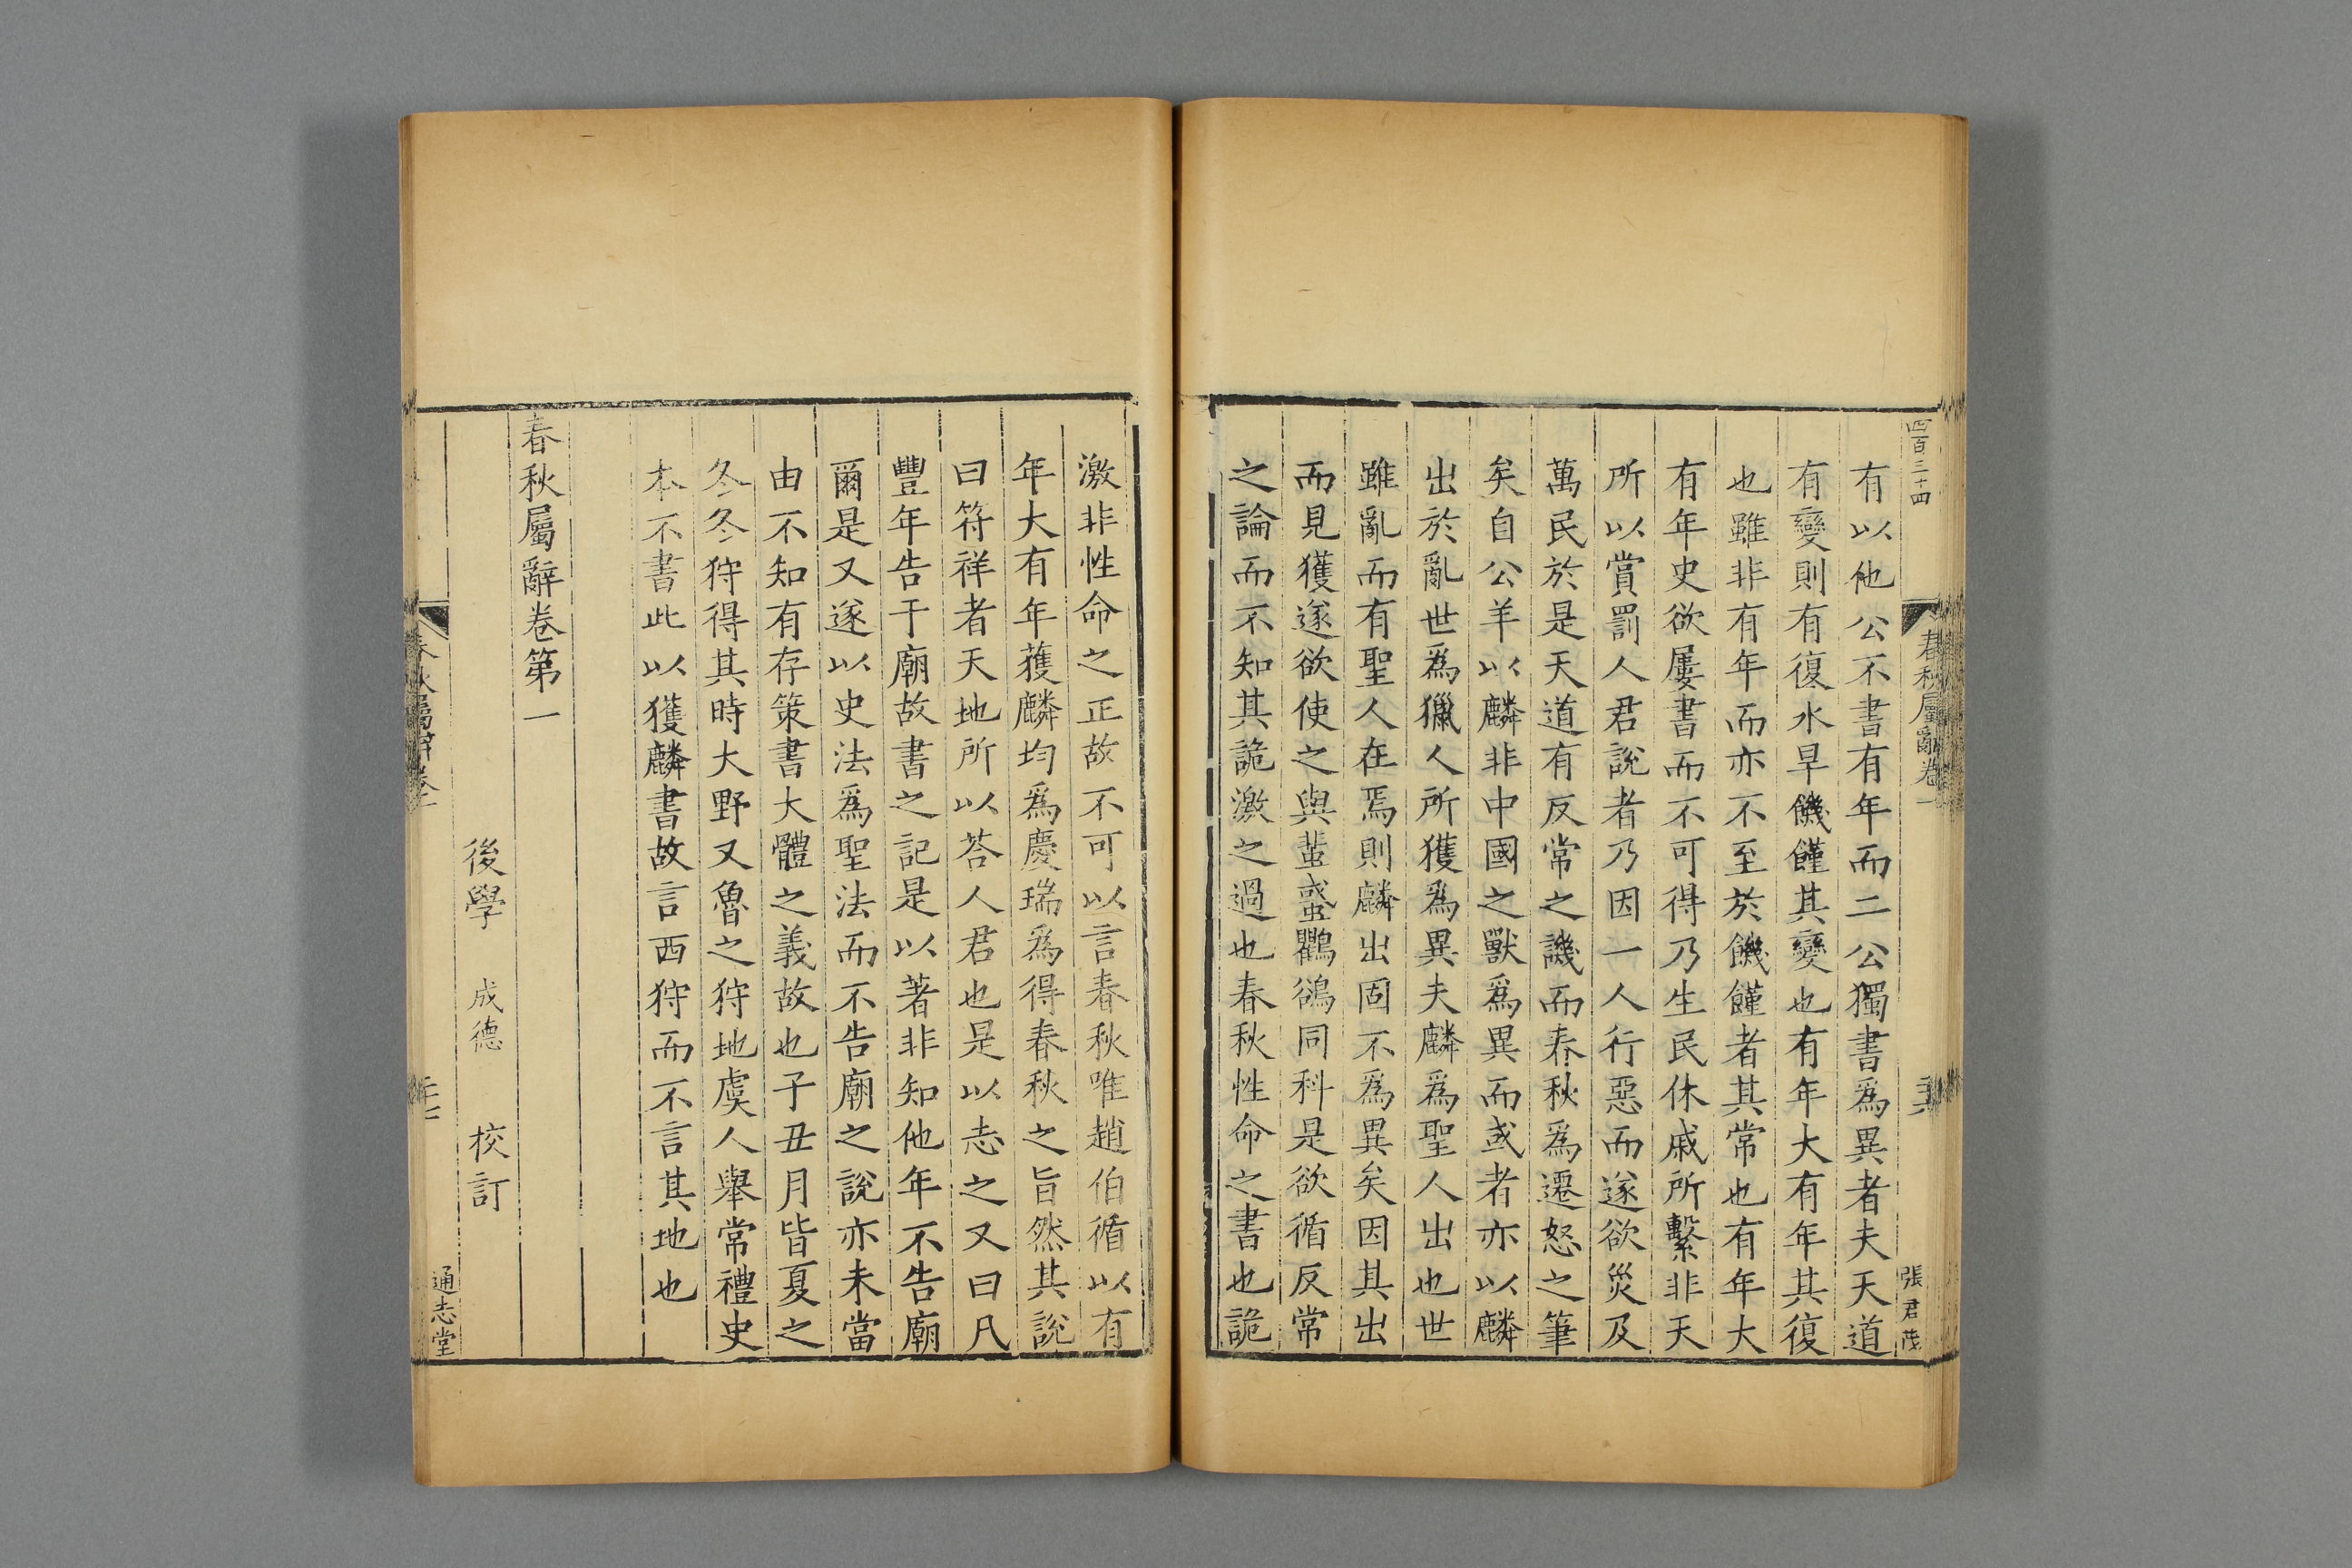 四百三十四
春秋屬辭卷一
張君茂
有以他公不書有年而二公獨書爲異者夫天道
有變則有復水旱饑饉其變也有年大有年其復
也雖非有年而亦不至於饑饉者其常也有年大
有年史欲屢書而不可得乃生民休戚所繫非天
所以賞罰人君說者乃因一人行惡而遂欲災及
萬民於是天道有反常之譏而春秋爲遷怒之筆
矣自公羊以麟非中國之獸爲異而或者亦以麟
出於亂世爲獵人所獲爲異夫麟爲聖人出也世
雖亂而有聖人在焉則麟出固不爲異矣因其出
而見獲遂欲使之與蜚蜮鸜鵒同科是欲循反常
之論而不知其詭激之過也春秋性命之書也詭
激非性命之正故不可以言春秋唯趙伯循以有
年大有年獲麟均爲慶瑞爲得春秋之旨然其說
曰符祥者天地所以荅人君也是以志之又曰凡
豐年告于廟故書之記是以著非知他年不告廟
爾是又遂以史法爲聖法而不告廟之說亦未當
由不知有存策書大體之義故也子丑月皆夏之
冬冬狩得其時大野又魯之狩地虞人舉常禮史
本不書此以獲麟書故言西狩而不言其地也
春秋屬辭卷第一
後學 成德 校訂
春秋屬辭卷一
通志堂